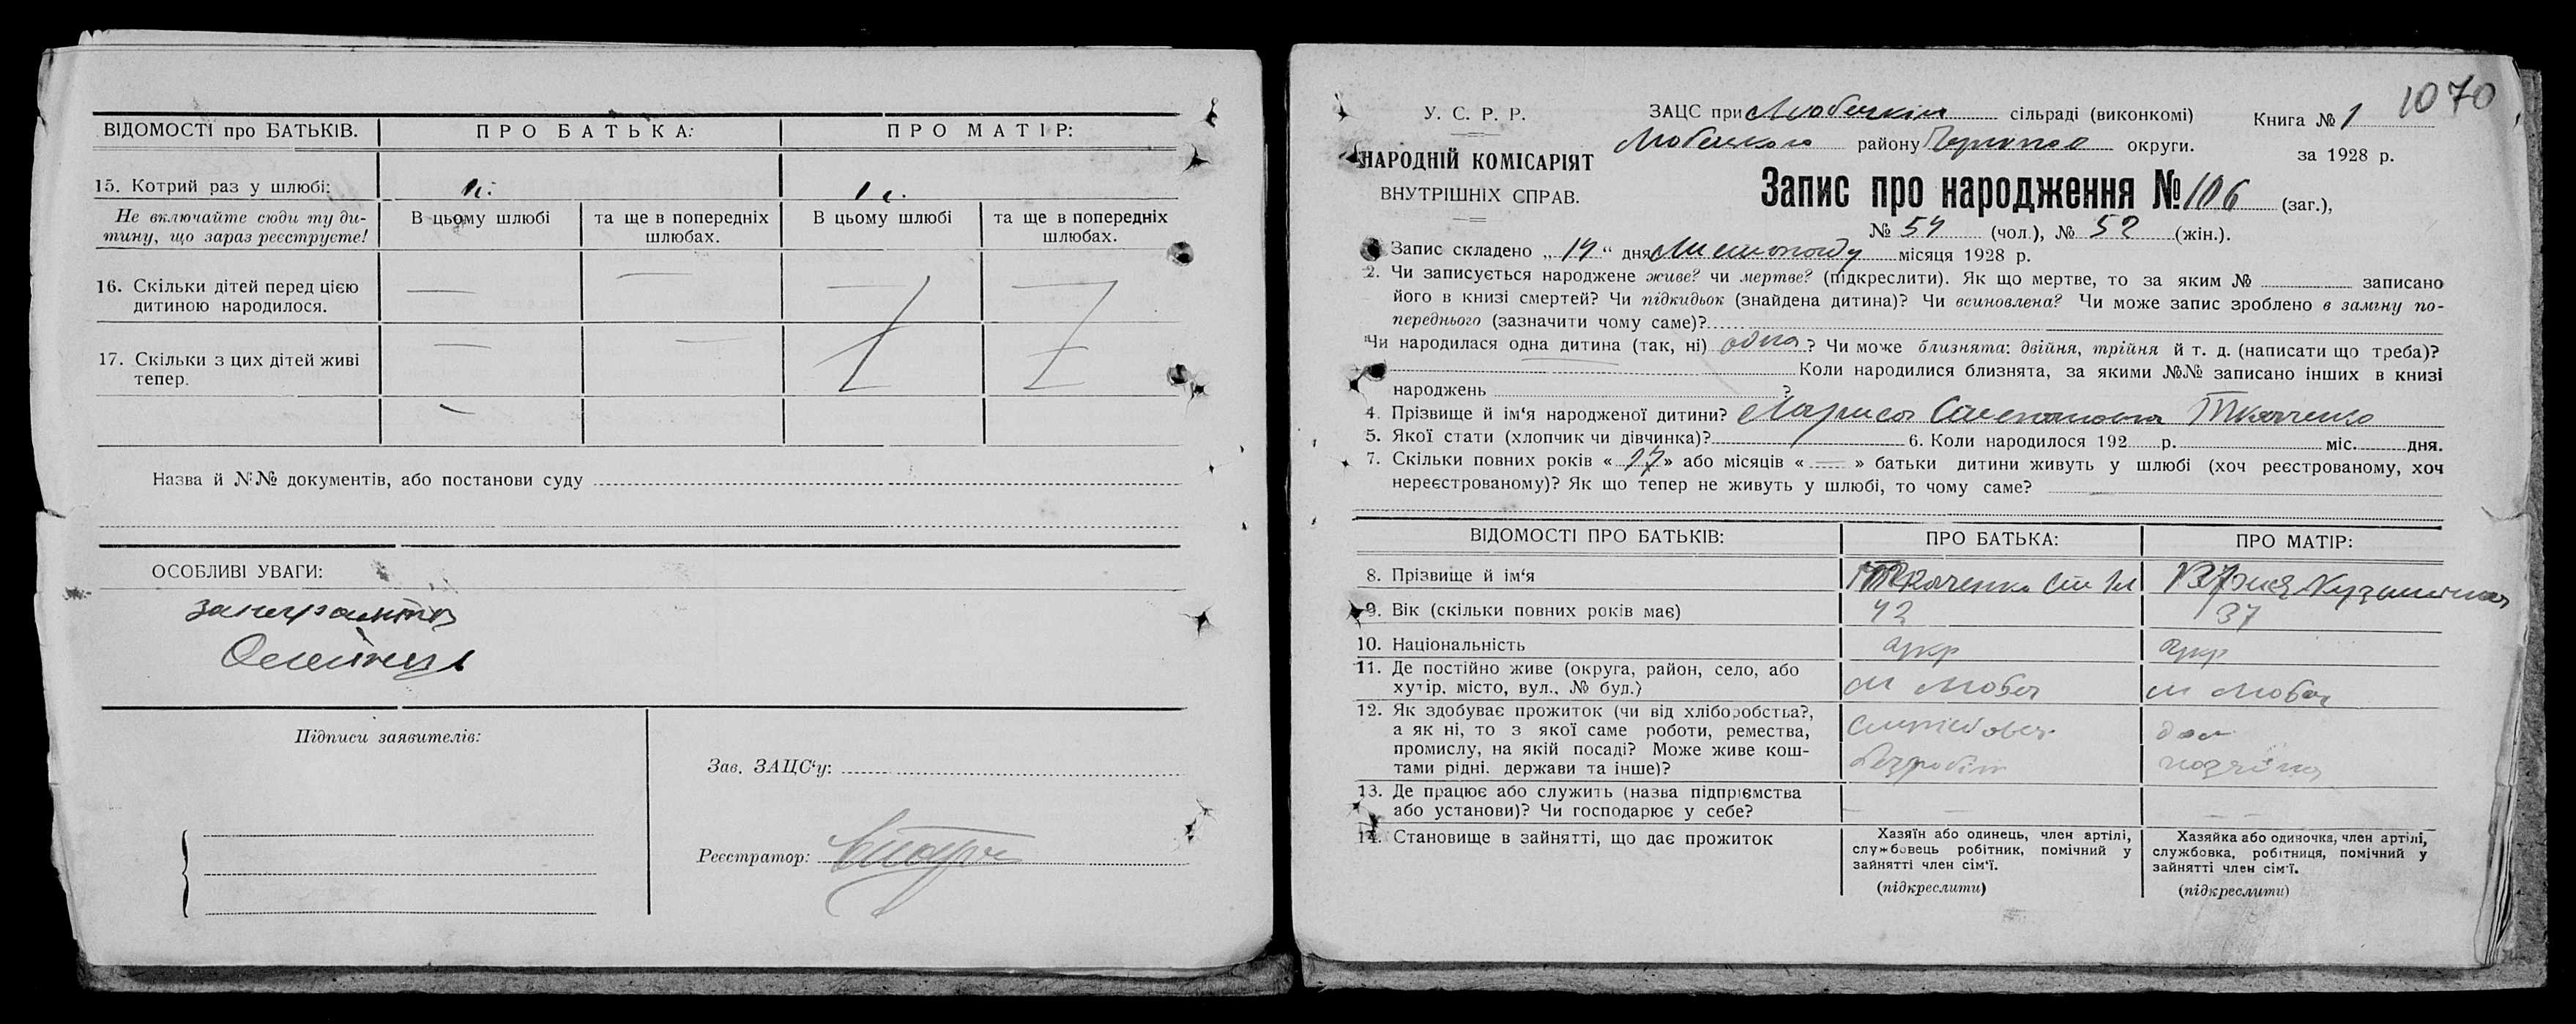 ВІДОМОСТІ про БАТЬКІВ.
ПРО БАТЬКА:
ПРО МАТІР:
15. Котрий раз у шлюбі:
Не включайте сюди ту ди-
тину, що зараз реєструєте!
В цьому шлюбі
та ще в попередніх
шлюбах.
В цьому шлюбі
та ще в попередніх
шлюбах.
16. Скільки дітей перед цією
дитиною народилося.
— — — —
17. Скільки з цих дітей живі
тепер.
— —
Назва й №№ документів, або постанови суду
ОСОБЛИВІ УВАГИ:
Підписи заявителів:
Зав. ЗАЦС‘у:
Реєстратор:
1070
У. С. Р. Р.
НАРОДНІЙ КОМІСАРІЯТ
ВНУТРІШНІХ СПРАВ.
ЗАЦС при Любецкій сільраді (виконкомі)
Любецкого району Чернігов округи.
Книга № 1
за 1928 р.
Запис про народження № 106 (заг.),
№ 54 (чол.), № 52 (жін.).
Запис складено „14“ дня Листопаду місяця 1928 р.
2. Чи записується народжене живе? чи мертве? (підкреслити). Як що мертве, то за яким № записано
його в книзі смертей? Чи підкидьок (знайдена дитина)? Чи всиновлена? Чи може запис зроблено в заміну по-
переднього (зазначити чому саме)?
Чи народилася одна дитина (так, ні) одна? Чи може близнята: двійня, трійня й т. д. (написати що треба)?
Коли народилися близнята, за якими №№ записано інших в книзі
народжень ?
4. Прізвище й ім‘я народженої дитини? Лариса Степановна Ткаченко
5. Якої стати (хлопчик чи дівчинка)? 6. Коли народилося 192 р. міс. дня.
7. Скільки повних років «17» або місяців «—» батьки дитини живуть у шлюбі (хоч реєстрованому, хоч
нереєстрованому)? Як що тепер не живуть у шлюбі, то чому саме?
ВІДОМОСТІ ПРО БАТЬКІВ:
ПРО БАТЬКА:
ПРО МАТІР:
8. Прізвище й ім‘я
Ткаченко Ст
9. Вік (скільки повних років має)
42
37
10. Національність
укр
укр
11. Де постійно живе (округа, район, село, або
хутір, місто, вул., № буд.)
м Любеч
м Любеч
12. Як здобуває прожиток (чи від хліборобства?,
а як ні, то з якої саме роботи, ремества,
промислу, на якій посаді? Може живе кош-
тами рідні, держави та інше)?
службовец
безробіт
дом
хозяйка
13. Де працює або служить (назва підприємства
або установи)? Чи господарює у себе?
— —
14. Становище в зайнятті, що дає прожиток
Хазяїн або одинець, член артілі,
службовець робітник, помічний у
зайнятті член сім‘ї.
(підкреслити)
Хазяйка або одиночка, член артілі,
службовка, робітниця, помічний у
зайнятті член сім‘ї.
(підкреслити)